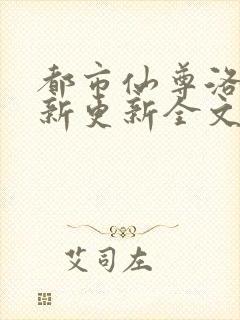 都市仙尊洛
新更新全文
艾司左